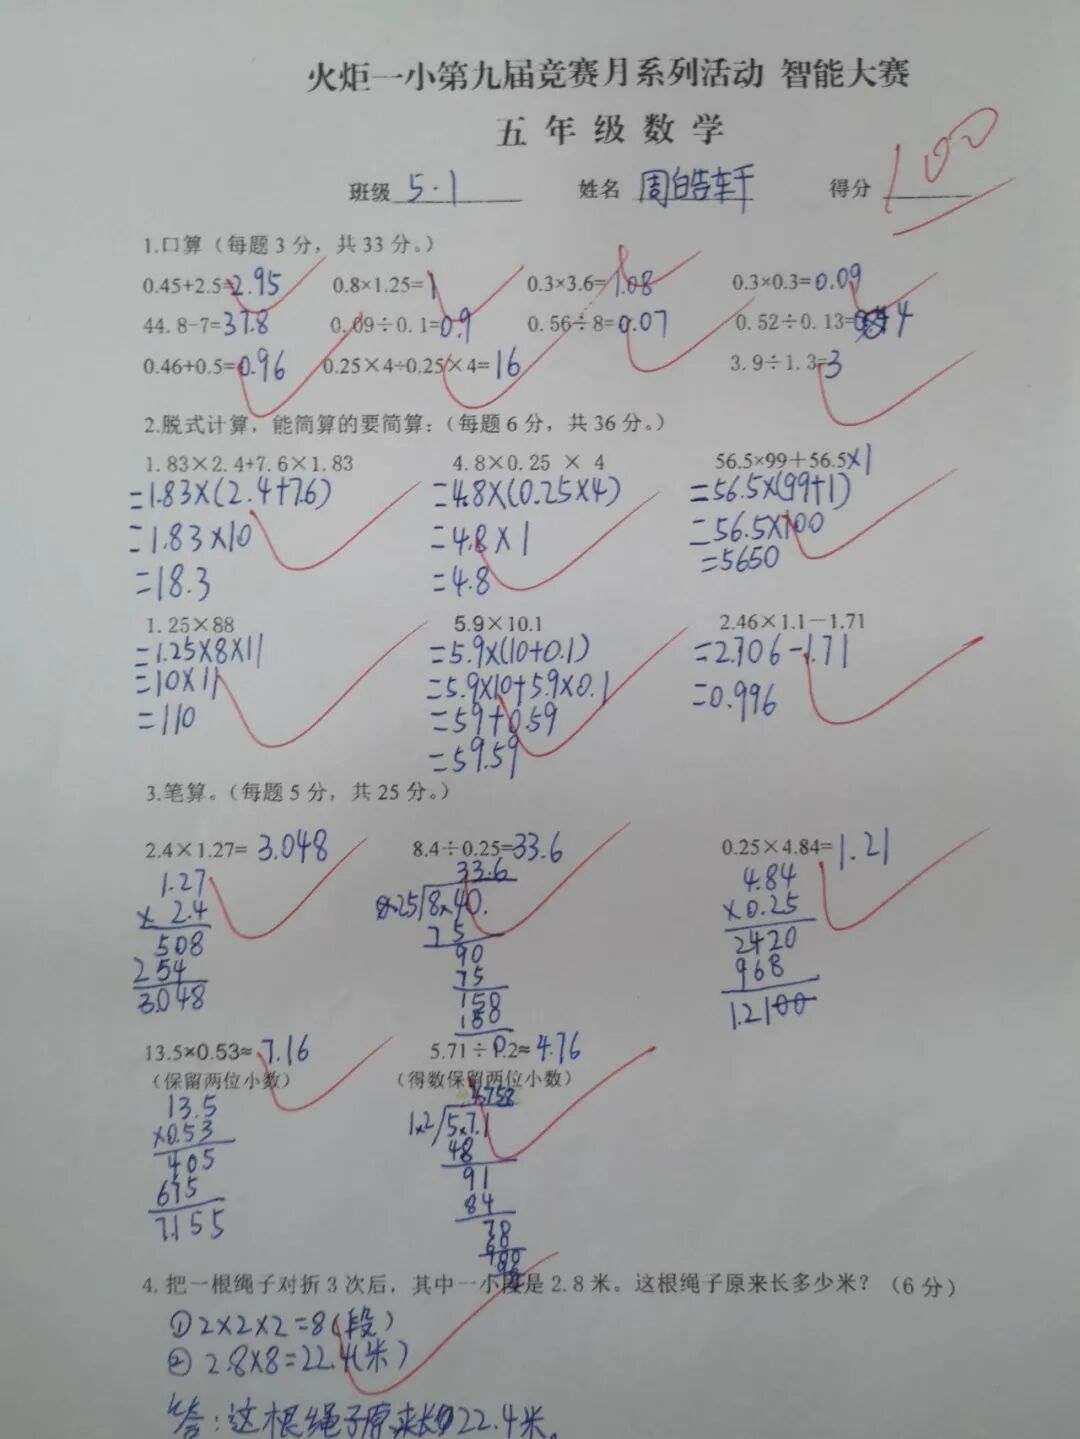 火炬一小第九届竞赛月系列活动 智能大赛
五 年 级 数 学
班级 5.1 姓名 周皓轩 得分 100
1.口算（每题3分，共33分。）
0.45+2.5=2.95 0.8×1.25=1 0.3×3.6=1.08 0.3×0.3=0.09
44.8-7=37.8 0.09÷0.1=0.9 0.56÷8=0.07 0.52÷0.13=4
0.46+0.5=0.96 0.25×4÷0.25×4=16 3.9÷1.3=3
2.脱式计算，能简算的要简算：（每题6分，共36分。）
1.83×2.4+7.6×1.83 4.8×0.25 × 4 56.5×99+56.5×1
=1.83×(2.4+7.6) =4.8×(0.25×4) =56.5×(99+1)
=1.83×10 =4.8×1 =56.5×100
=18.3 =4.8 =5650
1.25×88 5.9×10.1 2.46×1.1-1.71
=1.25×8×11 =5.9×(10+0.1) =2.706-1.71
=10×11 =5.9×10+5.9×0.1 =0.996
=110 =59+0.59
=59.59
3.笔算。（每题5分，共25分。）
2.4×1.27= 3.048 8.4÷0.25=33.6 0.25×4.84= 1.21
1.27 33.6 4.84
× 2.4 0.25 8.40. ×0.25
508 75 2420
254 90 968
3.048 75 1.2100
150
150
0
13.5×0.53≈ 7.16 5.71÷1.2≈ 4.76
（保留两位小数） （得数保留两位小数）
13.5 4.758
×0.53 1.2 5.7.1
405 48
675 91
7.155 84
4. 把一根绳子对折3次后，其中一小段是2.8米。这根绳子原来长多少米？（6分）
①2×2×2=8(段)
② 2.8×8=22.4(米)
答：这根绳子原来长22.4米。